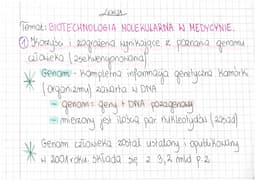 Lekcja
Temat: BIOTECHNOLOGIA MOLEKULARNA W MEDYCYNIE.
① Korzyści i zagrożenia wynikające z poznania genomu
człowieka (zsekwencjonowania)
Genom - kompletna informacja genetyczna komórki
(organizmu) zawarta w DNA
- genom: geny + DNA pozagenowy
- mierzony jest ilością par nukleotydów (zasad)
Genom człowieka został ustalony i opublikowany
w 2001 roku. składa się z 3,2 mld p.z.